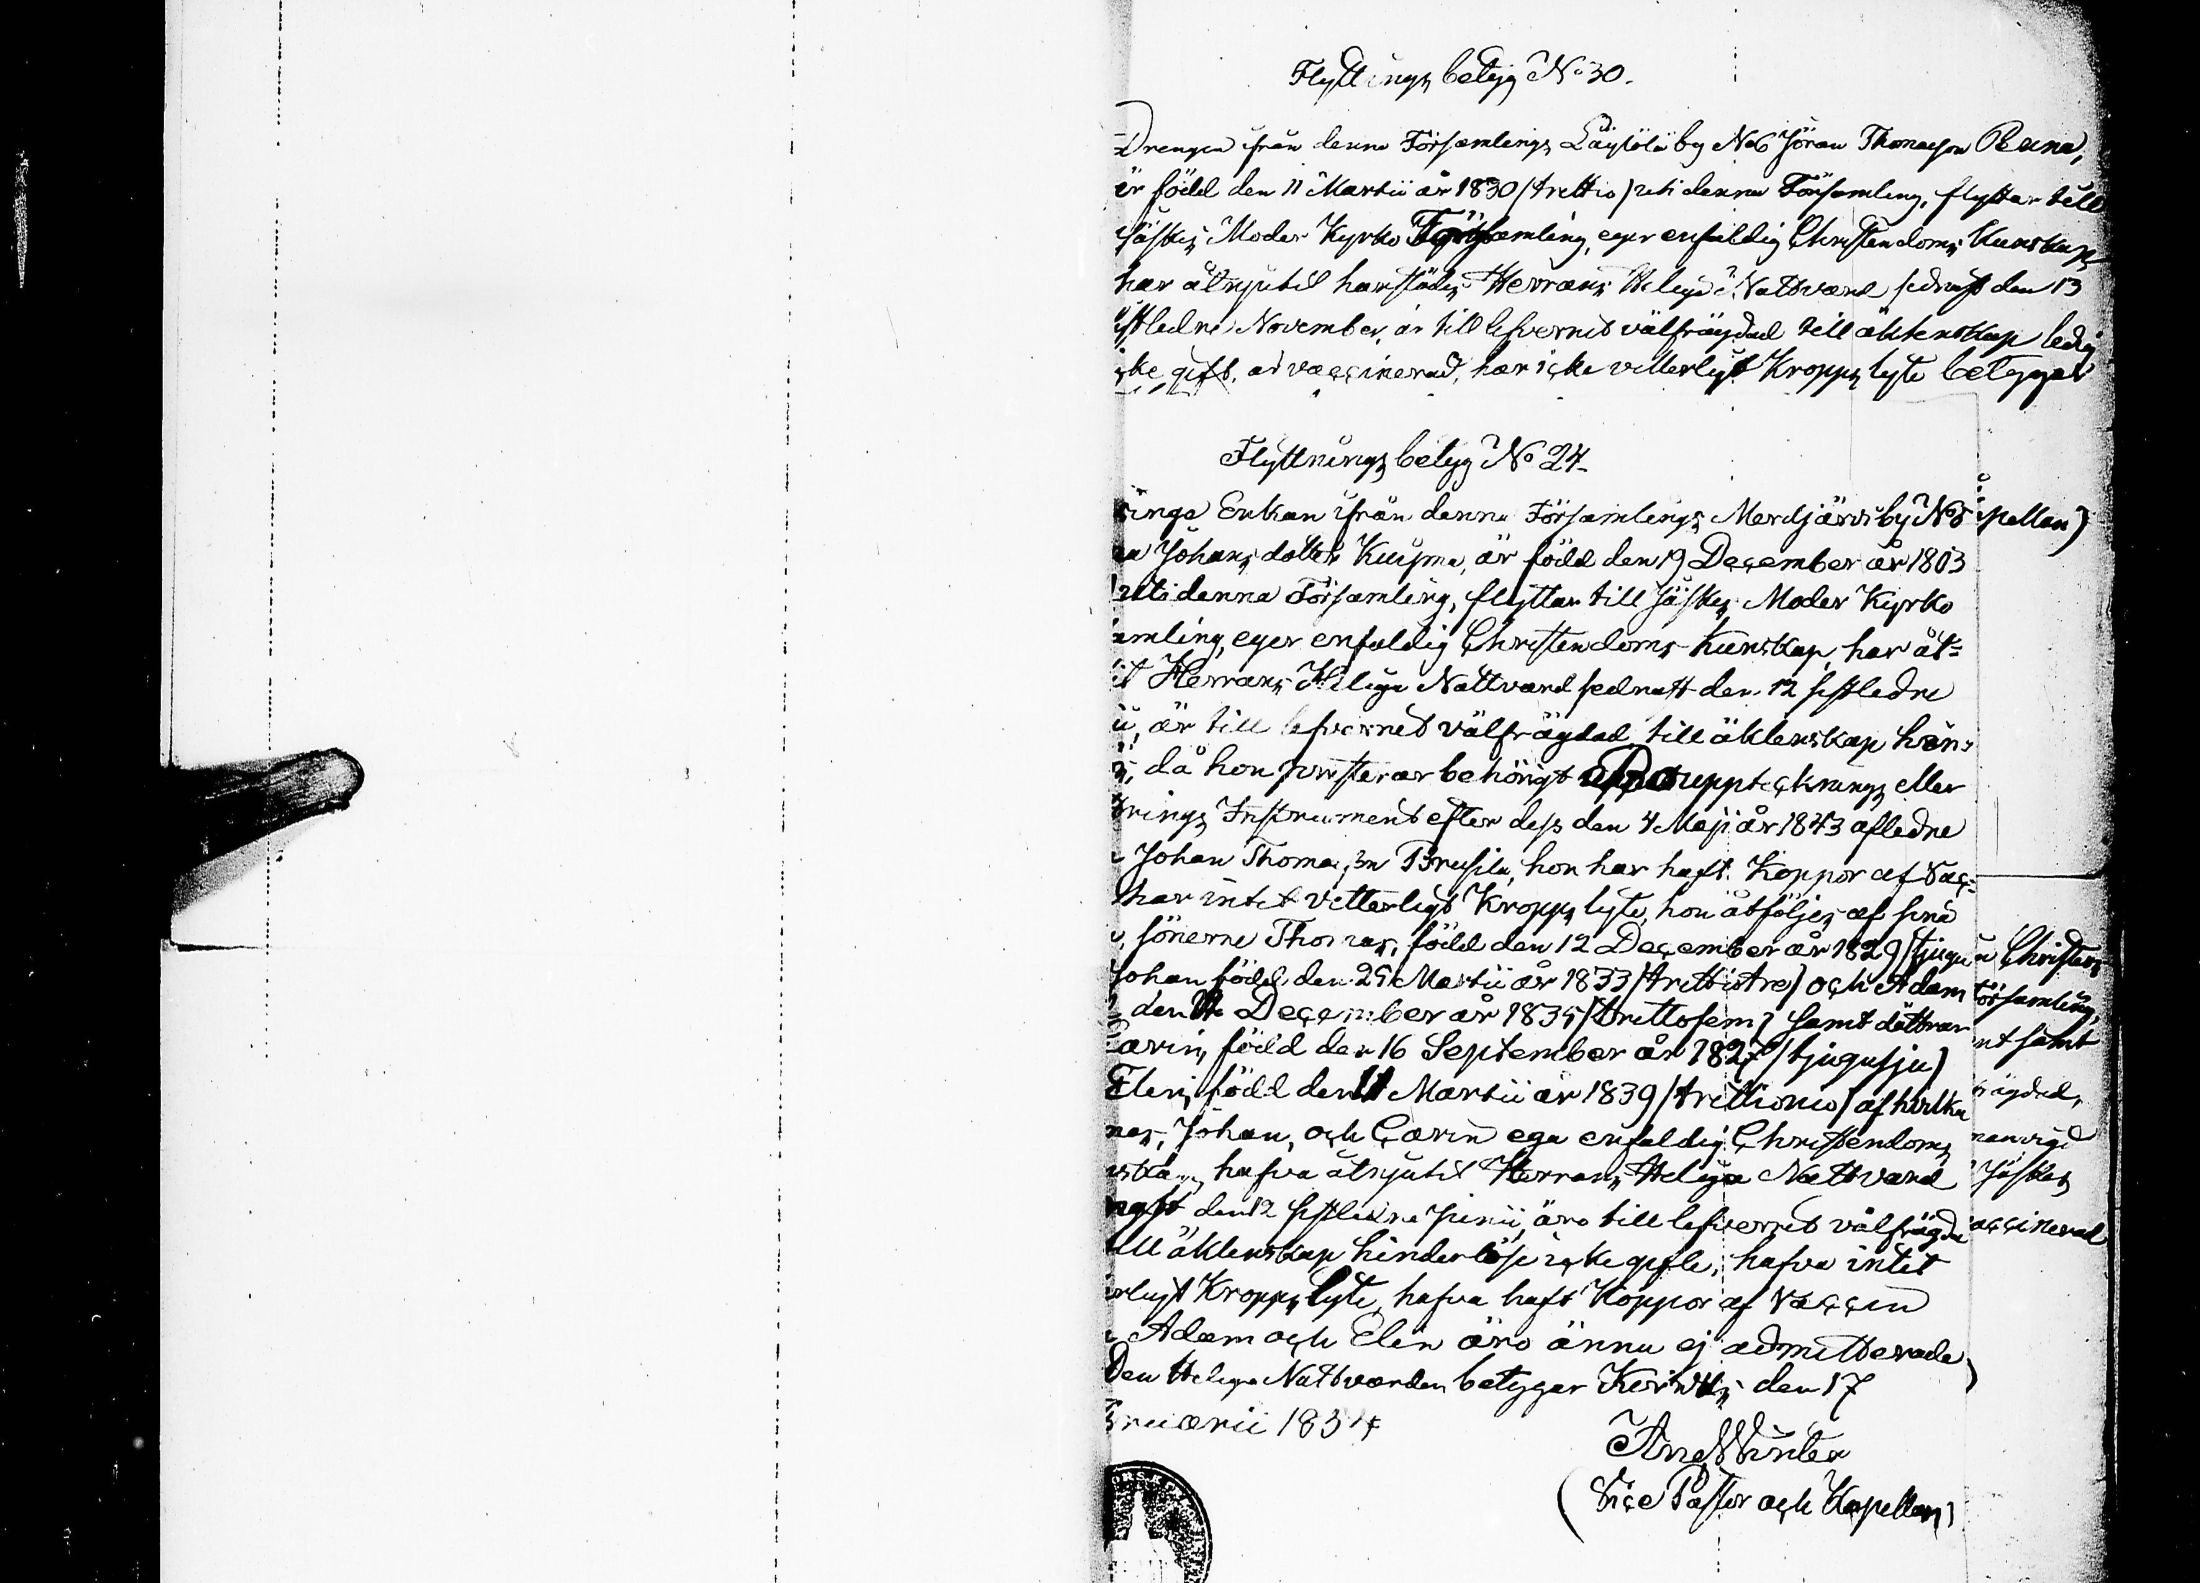 Flyttnings betyg No 30.
Drengen ifrån denna Församlings by No 6 Jöran Thomasson
är född den 11 Martii år 1830 /trettio/ uti denna Församling, flyttar till
Jäskes Moder Kyrko Församling, eger enfaldig Christendoms Kunskap,
har åtnjutit härstädes Herrans Heliga Nattvard sednast den 13
sistledne November, är till lefvernet välfrägdad till äktenskap ledig
icke gift, är vaccinerad, har icke vitterligt Kropps lyte betygar
Flyttnings betyg No 24.
Enkan ifrån denna Församlings by No 5
pellan)
Johans dotter Kuisma, är född den 19 December år 1803
uti denna Församling, flyttar till Jäskes Moder Kyrko
amling, eger enfaldig Christendoms Kunskap, har åt-
it Herrans Heliga Nattvard sednast den 12 sistledne
är till lefvernet välfrägdad till äktenskap hin-
då hon presterar behörigt upptecknings eller
rings Instrument efter dess den 4 Maji år 1843 afledne
Johan Thomasson hon har haft Koppor af Vac-
har intet vitterligt Kropps lyte, hon åtföljes af sina
sönerne Thomas, född den 12 December år 1829 /tjugu
Christen
Johan född den 29 Martii år 1833 /trettiotre/ och Adam
församling,
den December år 1835 /trettofem/ samt döttrar
nt samt
Carin, född den 16 September år 1827 /tjugusju/
Elen, född den 11 Martii år 1839 /trettionio/ af hvilka
ägdad,
mas, Johan, och Carin ega enfaldig Christendoms
hafva åtnjutit Herrans Heliga Nattvard
Jäskes
nast den 12 sistledne Junii, äro till lefvernet välfrägda
accinerad
till äktenskap hinderlöse icke gifte, hafva intet
erligt Kropps lyte, hafva haft Koppor af Vaccin
Adam och Elen äro ännu ej admitterade
Den Heliga Nattvarden betygar den 17
bruarii 1854
Winter
(Vice Pastor och Kapellan)